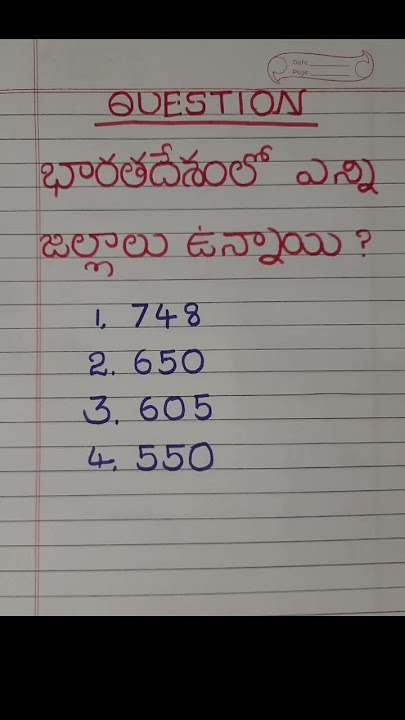 Date
Page
QUESTION
భారతదేశంలో ఎన్ని
జిల్లాలు ఉన్నాయి ?
1. 748
2. 650
3. 605
4. 550